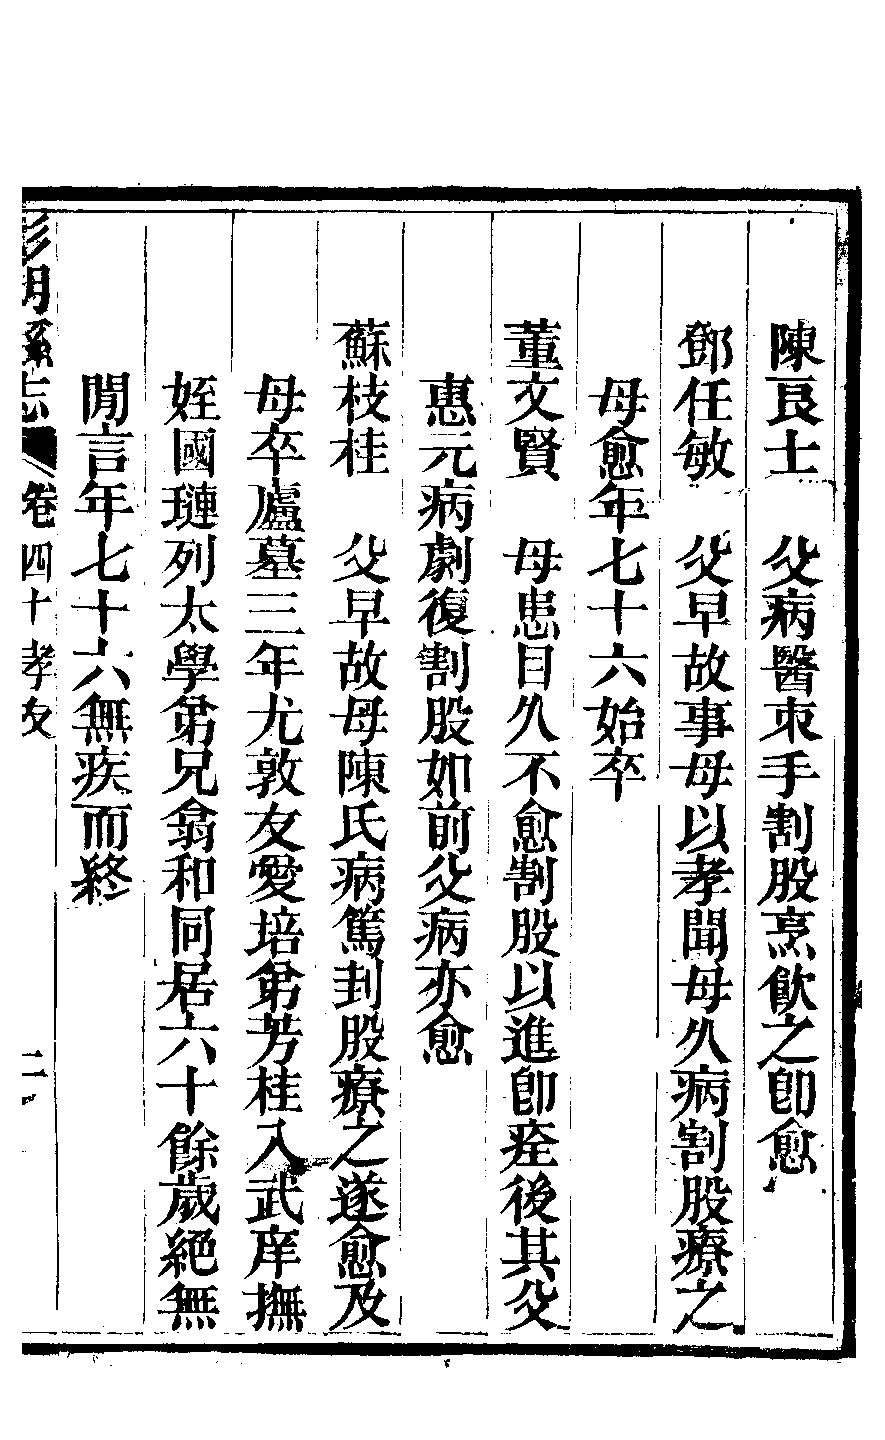 陳良士　父病醫束手割股烹飲之卽愈
鄧任敏　父早故事母以孝聞母久病割股療之
母愈年七十六始卒
董文賢　母患目久不愈割股以進卽痊後其父
惠元病劇復割股如前父病亦愈
蘇枝桂　父早故母陳氏病篤刲股療之遂愈及
母卒廬墓三年尤敦友愛培弟芳桂入武庠撫
姪國璉列太學弟兄翕和同居六十餘歲絕無
閒言年七十六無疾而終
彰明縣志　卷四十孝友　二